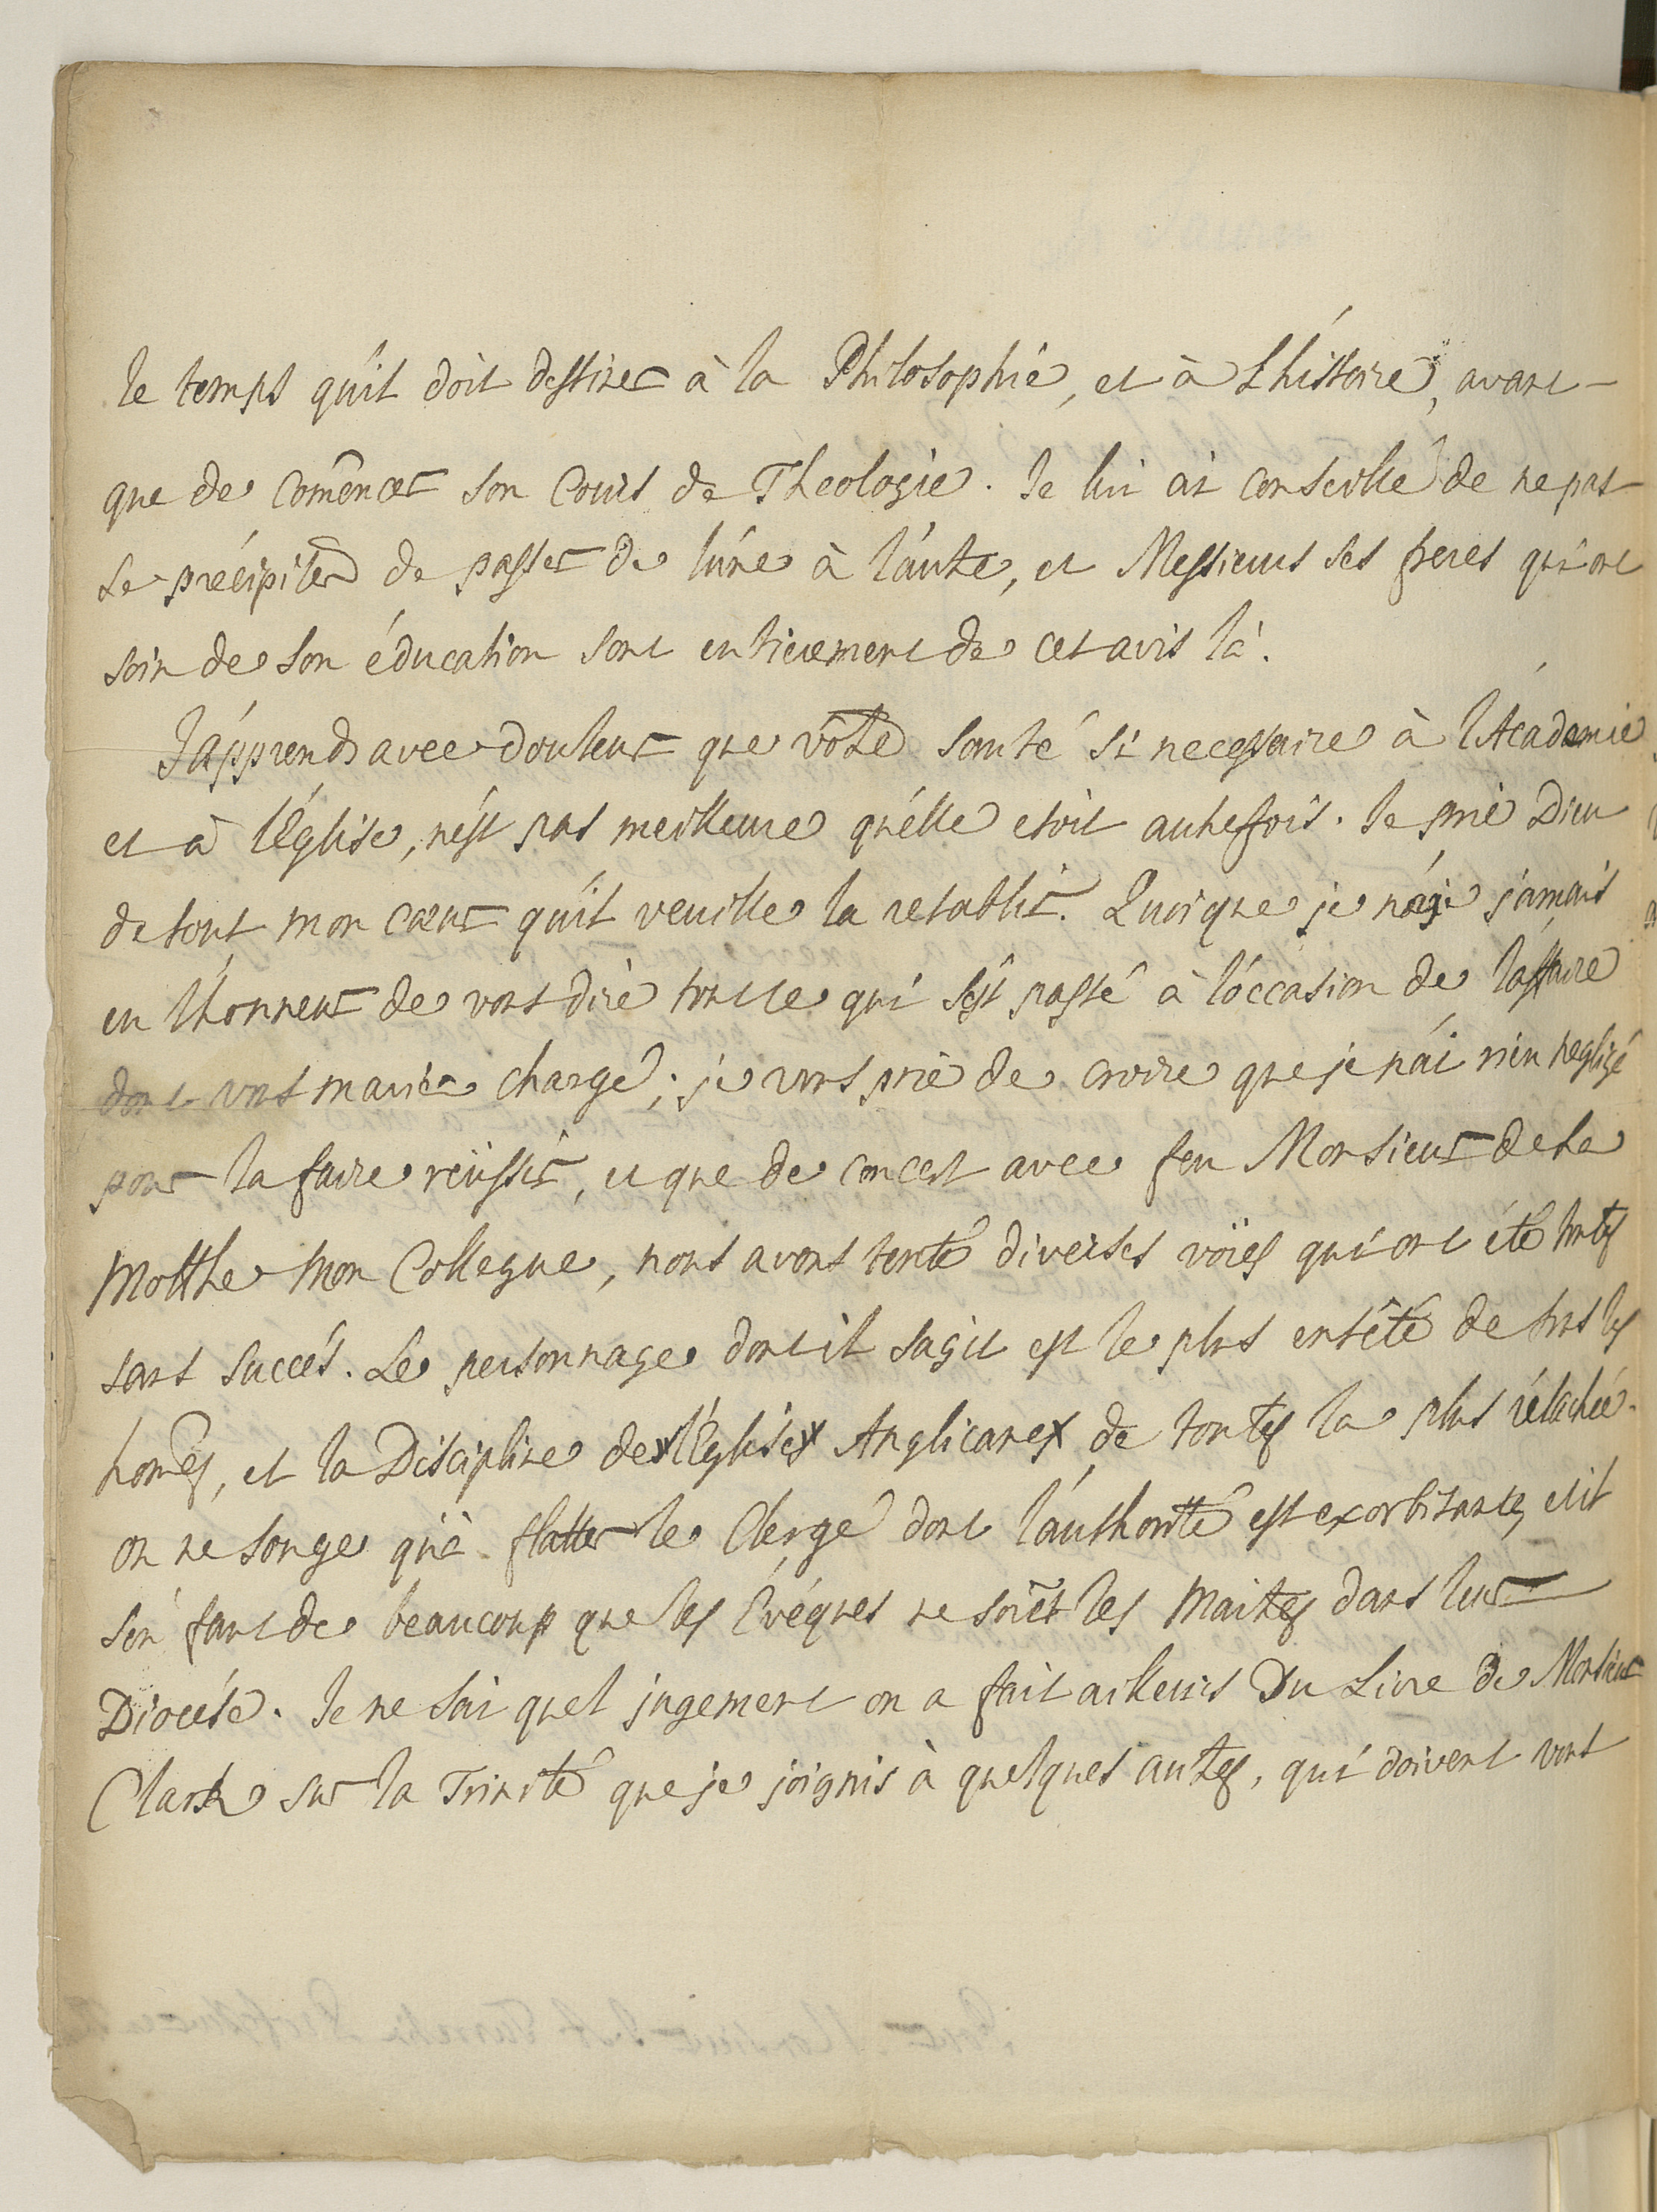 le temps qu'il doit destiner à la Philosophie, et à L'histoire, avant
que de com̃encer son Cours de Theologie. Je lui ai conseillé de ne pas
se précipiter de passer de l'une à l'autre, et Messieurs ses freres qui ont
soin de son éducation sont entierement de cet avis là.
J'apprends avec douleur que vôtre santé si necessaire à l'Académie
et à l'Église, n'est pas meilleure qu'elle etoit autreffois. Je prie Dieu
de tout mon cœur qu'il veuille la retablir. Quoique je n'aye jamais
eu l'honneur de vous dire tout ce qui s'est passé à l'occasion de l'affaire
dont vous m'aviez chargé; je vous prie de croire que je n'ai rien negligé
pour la faire reüssir, et que de concert avec feu Monsieur de la
Motthe mon Collegue, nous avons tenté diverses voïes qui ont été toutes
sans succés. Le personnage dont il s'agit est le plus entêté de tous les
hom̃es, et la Discipline de l'Église Anglicane, de toutes la plus rélachée.
on ne songe qu'à flatter le Clergé dont l'authorité est exorbitante, et il
s'en faut de beaucoup que les Evéques ne soient les Maitres dans leur
Diocése. Je ne sai quel jugement on a fait ailleurs Du Livre de Monsieur
Clark sur la Trinité que je joignis à quelques autres, qui doivent vous